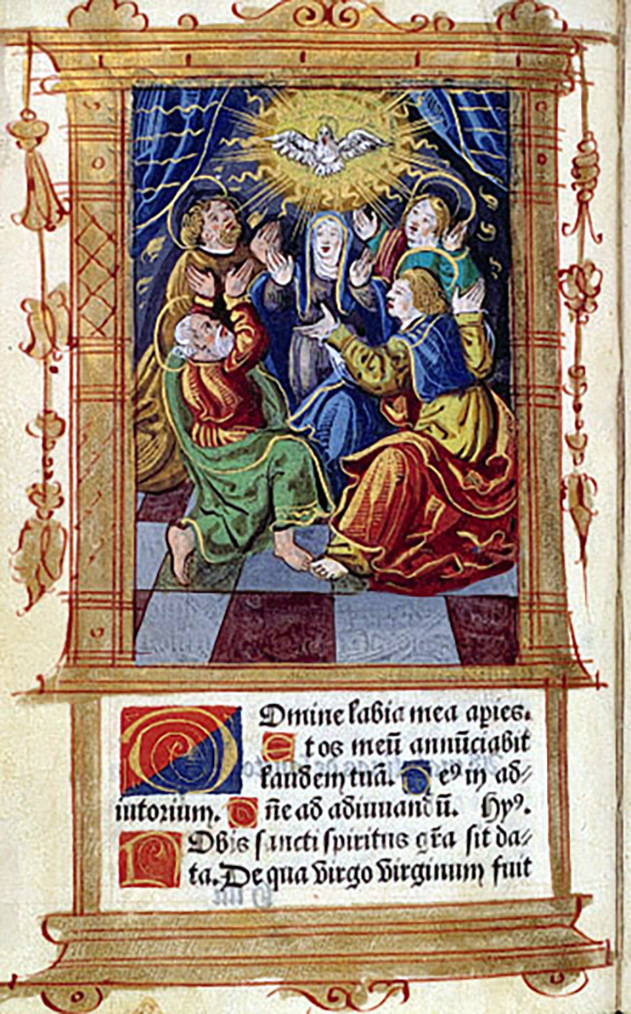 Domine labia mea apies.
Et os meū annūciabit
laudem tuā. De⁹ in ad⸗
iutorium. Dñe ad adiuuandū. Hy⁹.
Nobis sancti spiritus gr̄a sit da⸗
ta. De qua virgo virginum fuit